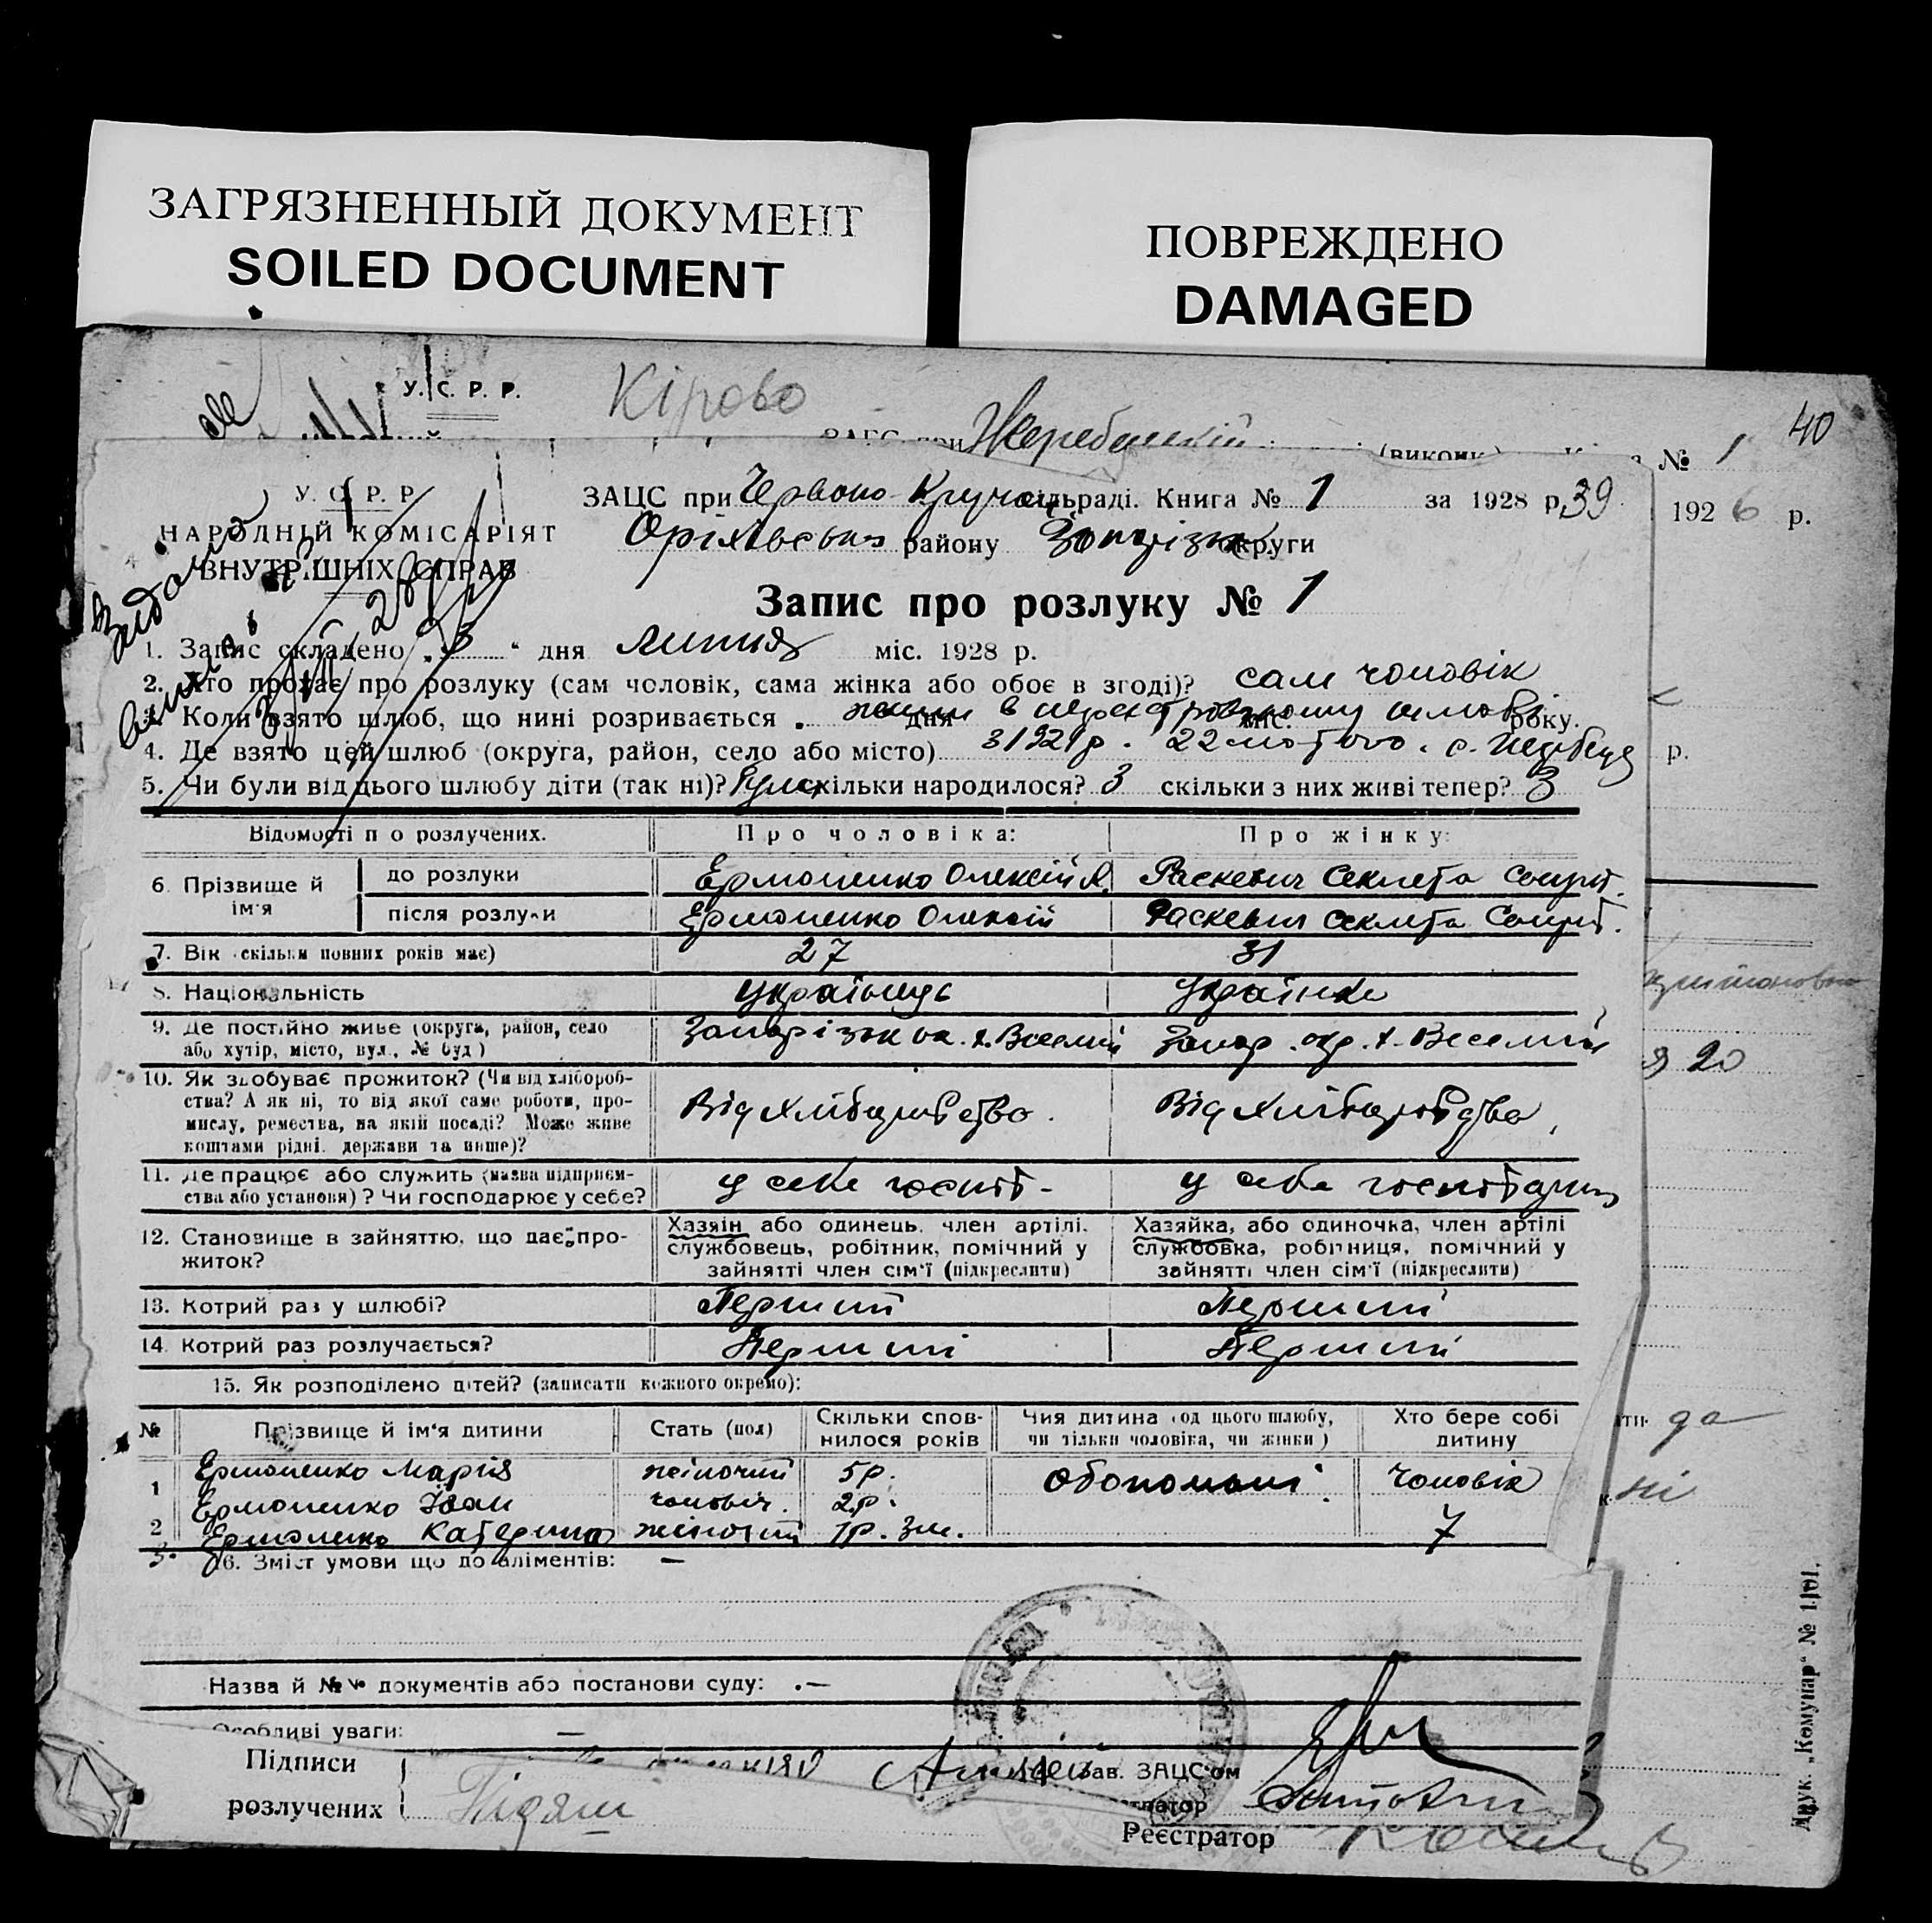 ЗАГРЯЗНЕННЫЙ ДОКУМЕНТ
SOILED DOCUMENT
ПОВРЕЖДЕНО
DAMAGED
У. С. Р. Р.
Кірово
40
Жеребецкій (виконк.) № 1
1926 р.
У. С. Р. Р.
НАРОДНІЙ КОМІСАРІЯТ
ВНУТРІШНІХ СПРАВ
ЗАЦС при Червоно-Кручан сільраді. Книга № 1 за 1928 р. 39
Оріхівськ району Запорізьк округи
Запис про розлуку № 1
1. Запис складено „3“ дня липня міс. 1928 р.
2. Хто прохає про розлуку (сам чоловік, сама жінка або обоє в згоді)? сам чоловік
3. Коли взято шлюб, що нині розривається дня міс. року.
4. Де взято цей шлюб (округа, район, село або місто) з 1921 р. 22 лютого. с.
р.
5. Чи були від цього шлюбу діти (так ні)? скільки народилося? 3 скільки з них живі тепер? 3
Відомості по розлучених. Про чоловіка: Про жінку:
6. Прізвище й ім'я
до розлуки Ермоленко Олексій А. Раскевич Секлета
після розлуки Ермоленко Олексій Раскевич Секлета
7. Вік (скільки повних років має) 27 31
8. Національність українець українка
9. Де постійно живе (округа, район, село Запорізьк ок. х. Веселий Запор. окр. х. Веселий
або хутір, місто, вул., № буд)
20
10. Як здобуває прожиток? (Чи від хлібороб-
ства? А як ні, то від якої саме роботи, про- Від хліборобства. Від хліборобства,
мислу, ремества, на якій посаді? Може живе
коштами рідні, держави та инше)?
11. Де працює або служить (назва підприєм- у себе госпот- у себе
ства або установи)? Чи господарює у себе?
12. Становище в зайняттю, що дає про-
житок?
Хазяін або одинець, член артілі,
службовець, робітник, помічний у
зайнятті член сім'ї (підкреслити)
Хазяйка, або одиночка, член артілі
службовка, робітниця, помічний у
зайнятті член сім'ї (підкреслити)
13. Котрий раз у шлюбі? Перший Перший
14. Котрий раз розлучається? Перший Перший
15. Як розподілено дітей? (записати кожного окремо):
№ Прізвище й ім'я дитини Стать (пол) Скільки спов-нилося років Чия дитина (од цього шлюбу, чи тільки чоловіка, чи жінки) Хто бере собі дитину
да
1 Ермоленко Марія жіночий 5р. чоловік
Ермоленко Іван чоловіч. 2р.
ні
2 Ермоленко Катерина жіночий 1р. 3м.
3.
16. Зміст умови що до аліментів: —
Назва й №№ документів або постанови суду: —
Особливі уваги: —
Підписи
розлучених
Зав. ЗАЦС'ом
Реєстратор
Друк. „Комунар“ № 1101.